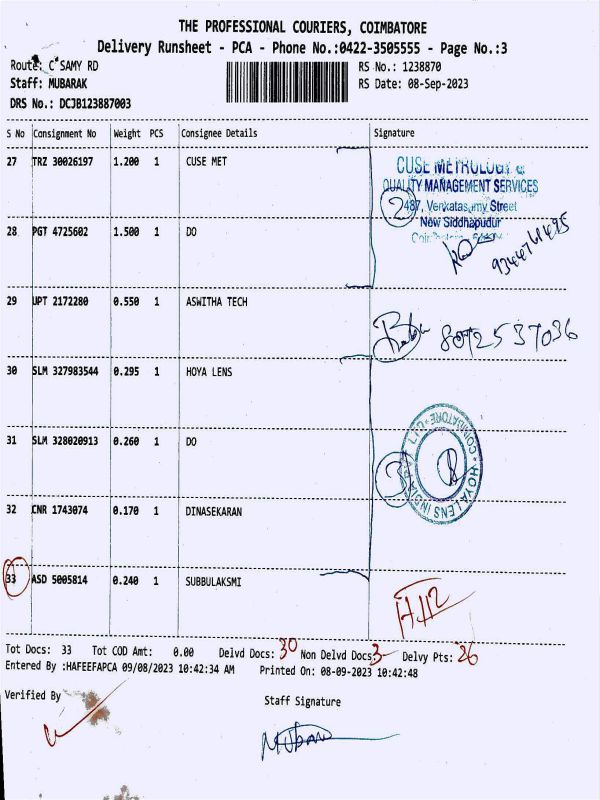 THE PROFESSIONAL COURIERS, COIMBATORE
Delivery Runsheet - PCA - Phone No.:0422-3505555 - Page No.:3
Route: C SAMY RD
RS No.: 1238870
Staff: MUBARAK
RS Date: 08-Sep-2023
DRS No.: DCJB123887003
S No Consignment No Weight PCS Consignee Details Signature
27 TRZ 30026197 1.200 1 CUSE MET
CUSE METROLOGY &
QUALITY MANAGEMENT SERVICES
487, Venkatasamy Street
New Siddhapudur
2
28 PGT 4725602 1.500 1 DO
9344761495
29 UPT 2172280 0.550 1 ASWITHA TECH
8072537036
30 SLM 327983544 0.295 1 HOYA LENS
31 SLM 328020913 0.260 1 DO
HOYA LENS INDIA PVT LTD COIMBATORE
32 CNR 1743074 0.170 1 DINASEKARAN
33 ASD 5005814 0.240 1 SUBBULAKSMI
Tot Docs: 33 Tot COD Amt: 0.00 Delvd Docs: 30 Non Delvd Docs: 3 Delvy Pts: 26
Entered By :HAFEEFAPCA 09/08/2023 10:42:34 AM Printed On: 08-09-2023 10:42:48
Verified By
Staff Signature
Mubarak